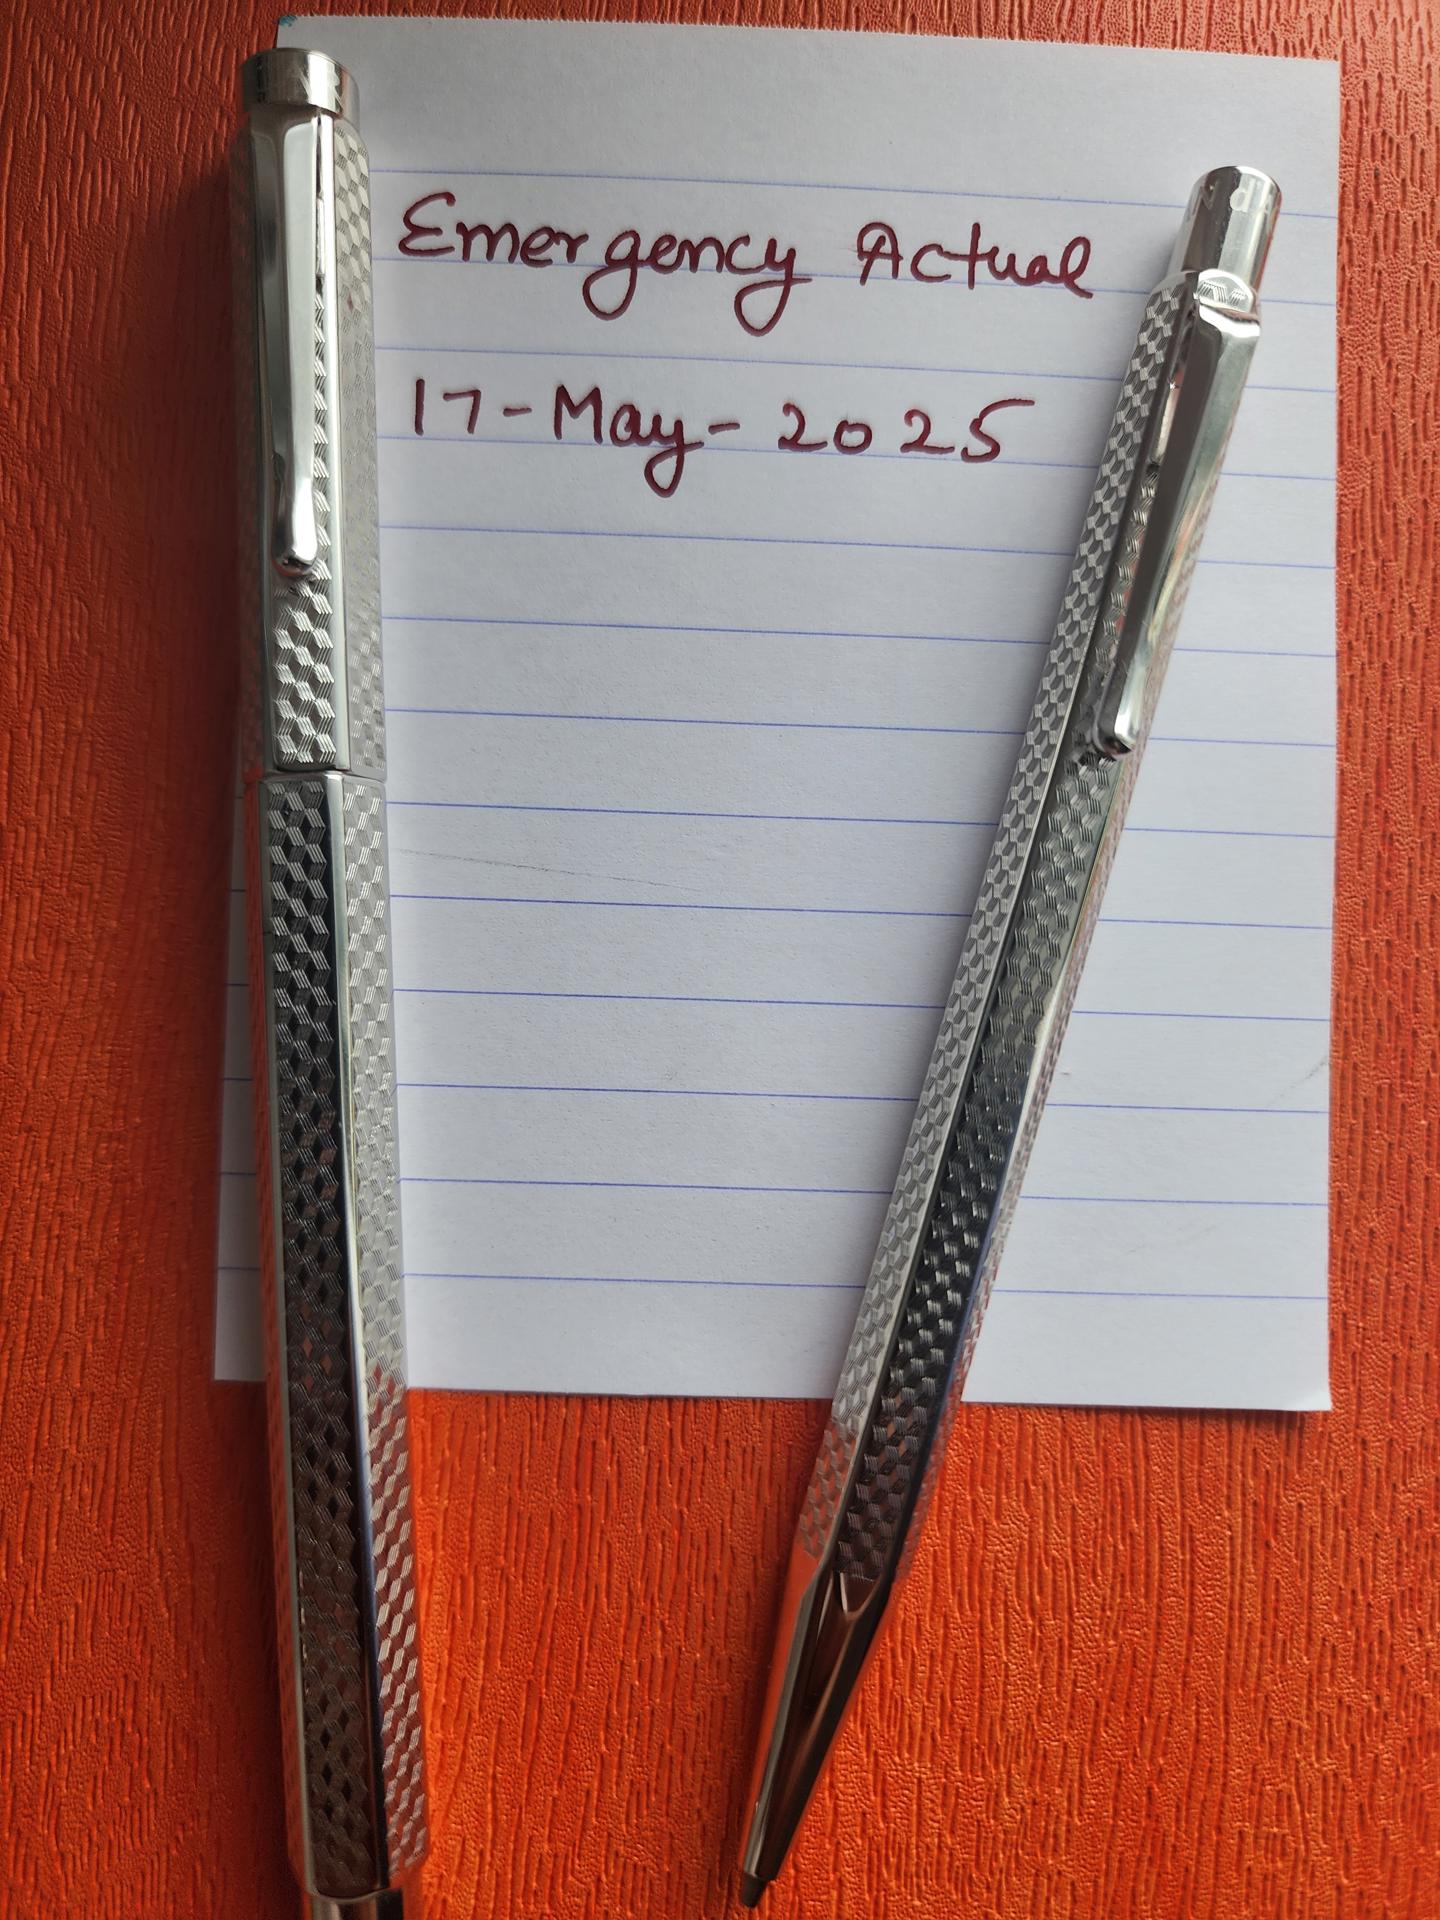 Emergency Actual
17-May-2025